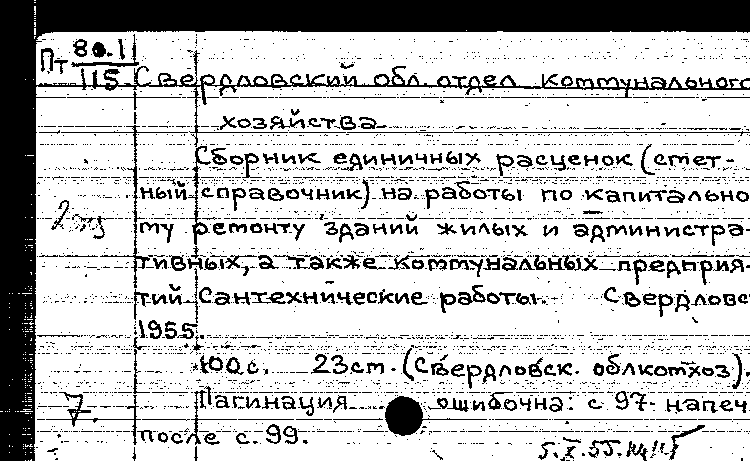 Пт 80.11
115
Свердловский обл. отдел коммунального
хозяйства
Сборник единичных расценок (смет-
ный справочник) на работы по капитально
2 экз
му ремонту зданий жилых и администра-
тивных, а также коммунальных предприя-
тий. Сантехнические работы. Свердловс
1955.
100 с. 23 см. (Свердловск. облкомхоз).
7.
Пагинация ошибочна: с 97- напеч.
после с. 99.